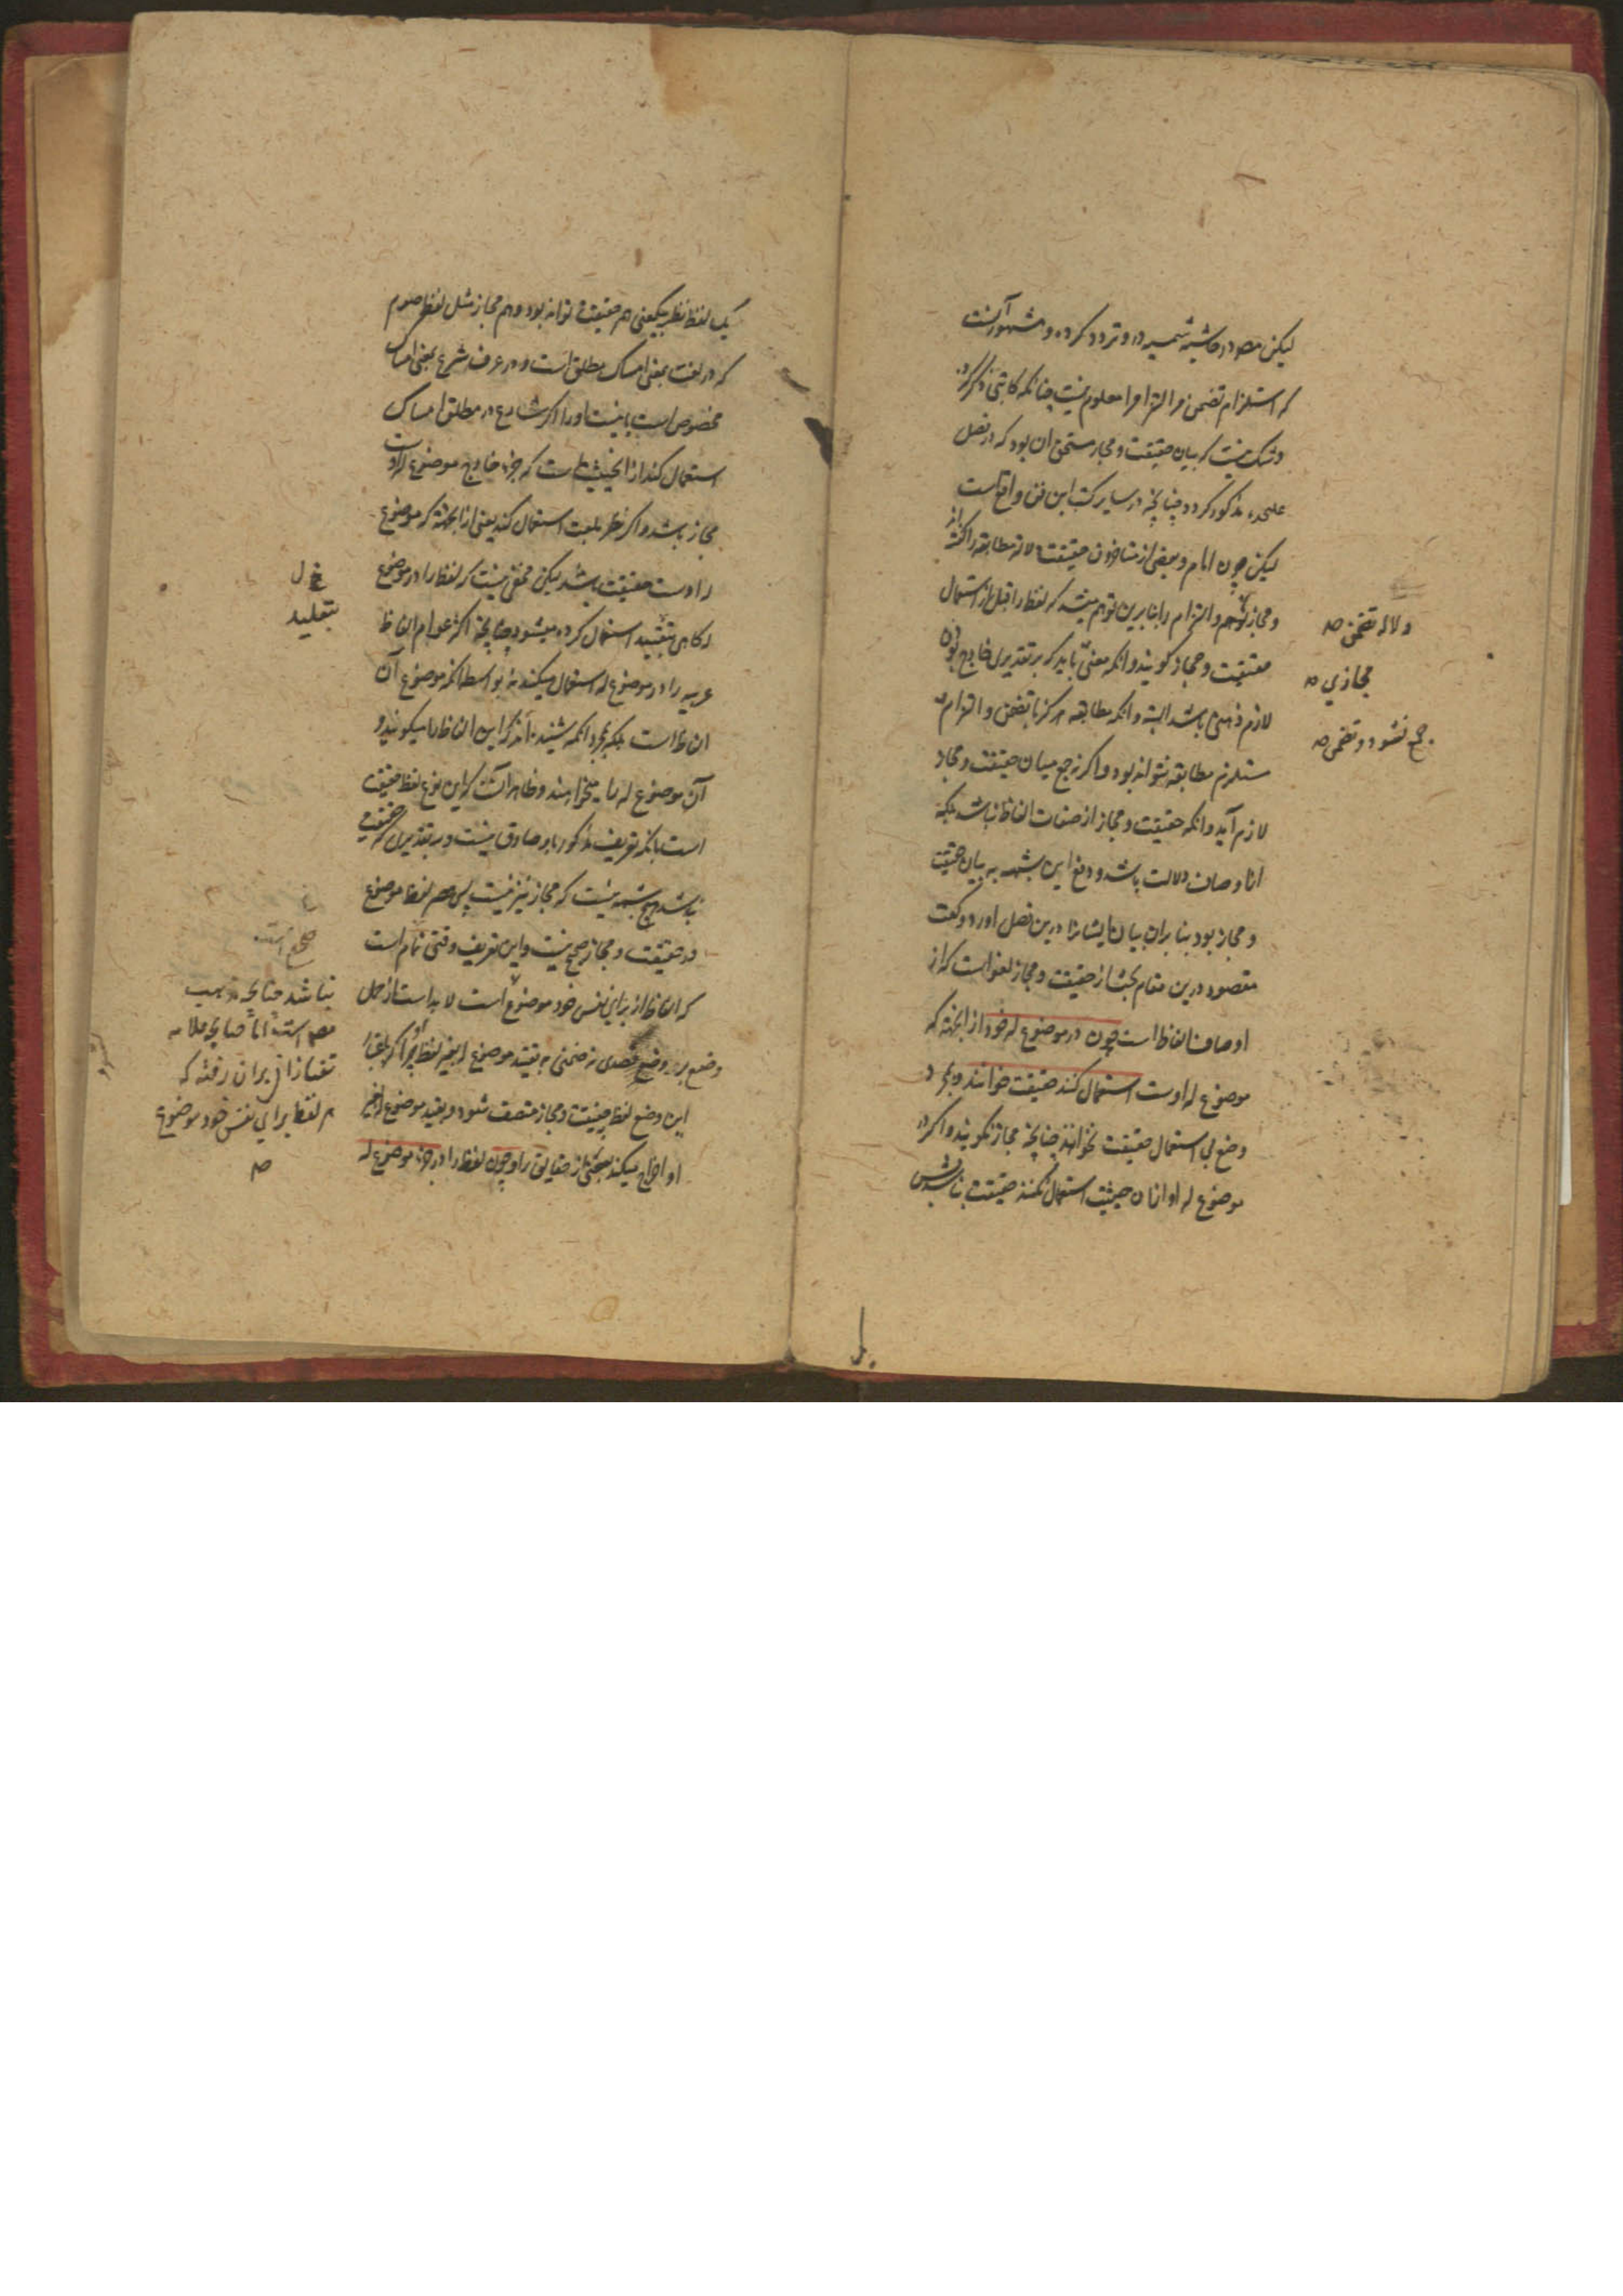 لیکن مصه در حاشیه شمسیه در و تردد کرده و مشهور آنست
که استلزام تضمن مر التزام را معلوم نیست چنانکه کاتبی ذکر کرده
و شک نیست که بیان حقیقت و مجاز مستحق ان بود که در فصل
علحده مذکور کردد چنانچه در سایر کتب این فن واقع است
لیکن چون امام و بعضی از متاخرون حقیقت دلالة مطابقه را گفته اند
و مجاز و التزام را بنابرین توهم میشد که لفظ را قبل از استعمال
حقیقت و مجاز کویند و انکه معنی باید که بر تقدیر خارج بودن
لازم ذهنی باشد البته و انکه مطابقه هرکز با تضمن و التزام
مستلزم مطابقه نتواند بود و اکرنه جمع میان حقیقت و مجاز
لازم آید و انکه حقیقت و مجاز از صفات الفاظ نباشد بلکه
از اوصاف دلالت باشد و دفع این شبهه به بیان حقیقت
و مجاز بود بنابران بیان ایشانرا درین فصل اورد و کفت
مقصود درین مقام بحث از حقیقت و مجاز لغوی است که از
اوصاف الفاظ است چون در موضوع له خود از انجهته که
موضوع له اوست استعمال کنند حقیقت خوانند و بمجرد
وضع بی استعمال حقیقت نخوانند چنانچه مجاز نکویند و اکر در
موضوع له او از ان حیثیت استعمال نکنند حقیقت نباشد پس
دلاله تضمن صه
مجازی صه
جمع نشود و تضمن صه
یک لفظ نظر بیکمعنی هم حقیقت تواند بود و هم مجاز مثل لفظ صوم
که در لغت بمعنی امساک مطلق است و در عرف شرع بمعنی امساک
مخصوص است با نیت او را اکر شارع در مطلق امساک
استعمال کند از انحیثیت است که جزء خارج موضوع له اوست
مجاز باشد و اکر نظر بلغت استعمال کند یعنی از انجهته که موضوع
له اوست حقیقت باشد لیکن مخفی نیست که لفظ را در موضوع
له کاهی استعمال کرده میشود چنانچه اکثر عوام الفاظ
عربیه را در موضوع له استعمال میکنند نه بواسطه انکه موضوع آن
الفاظ است بلکه بمجرد انکه شنیده‌اند که این الفاظ را میکویند و
آن موضوع له را میخواهند و ظاهر آنست که این نوع لفظ حقیقت
است با انکه تعریف مذکور بر او صادق نیست و بر تقدیری که حقیقت
نباشد هیچ شبهه نیست که مجاز نیز نیست پس حصر لفظ موضوع
در حقیقت و مجاز صحیح نیست و این تعریف وقتی تمام است
که الفاظ از برای نفس خود موضوع است لابد است از حمل
وضع بر وضع قصدی نه ضمنی و بقید موضوع له بغیر لفظ چرا که باعتبار
این وضع لفظ بحقیقت و مجاز متصف نشود و بقید موضوع له اخیر
او اخراج میکند بعضی از حقایق را و چون لفظ را در جزء موضوع له
خ ل
بتقلید
صحیح است
نباشد چنانچه مذهب
مصه است اما چنانچه علامه
تفتازانی بران رفته که
هر لفظ برای نفس خود موضوع
صه